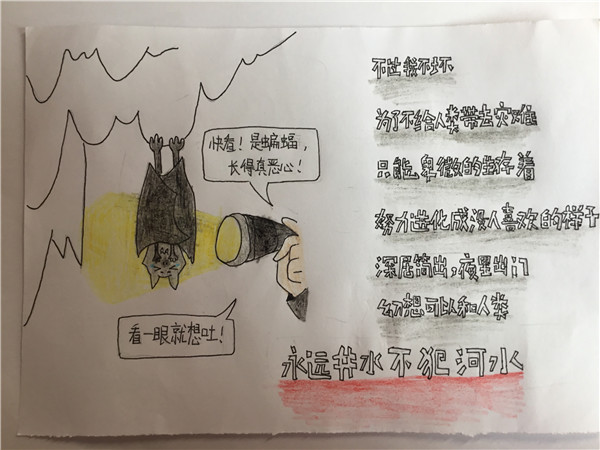 快看！是蝙蝠，
长得真恶心！
看一眼就想吐！
不过我不坏
为了不给人类带去灾难
只能卑微的生存着
努力进化成没人喜欢的样子
深居简出，夜里出门
幻想可以和人类
永远井水不犯河水